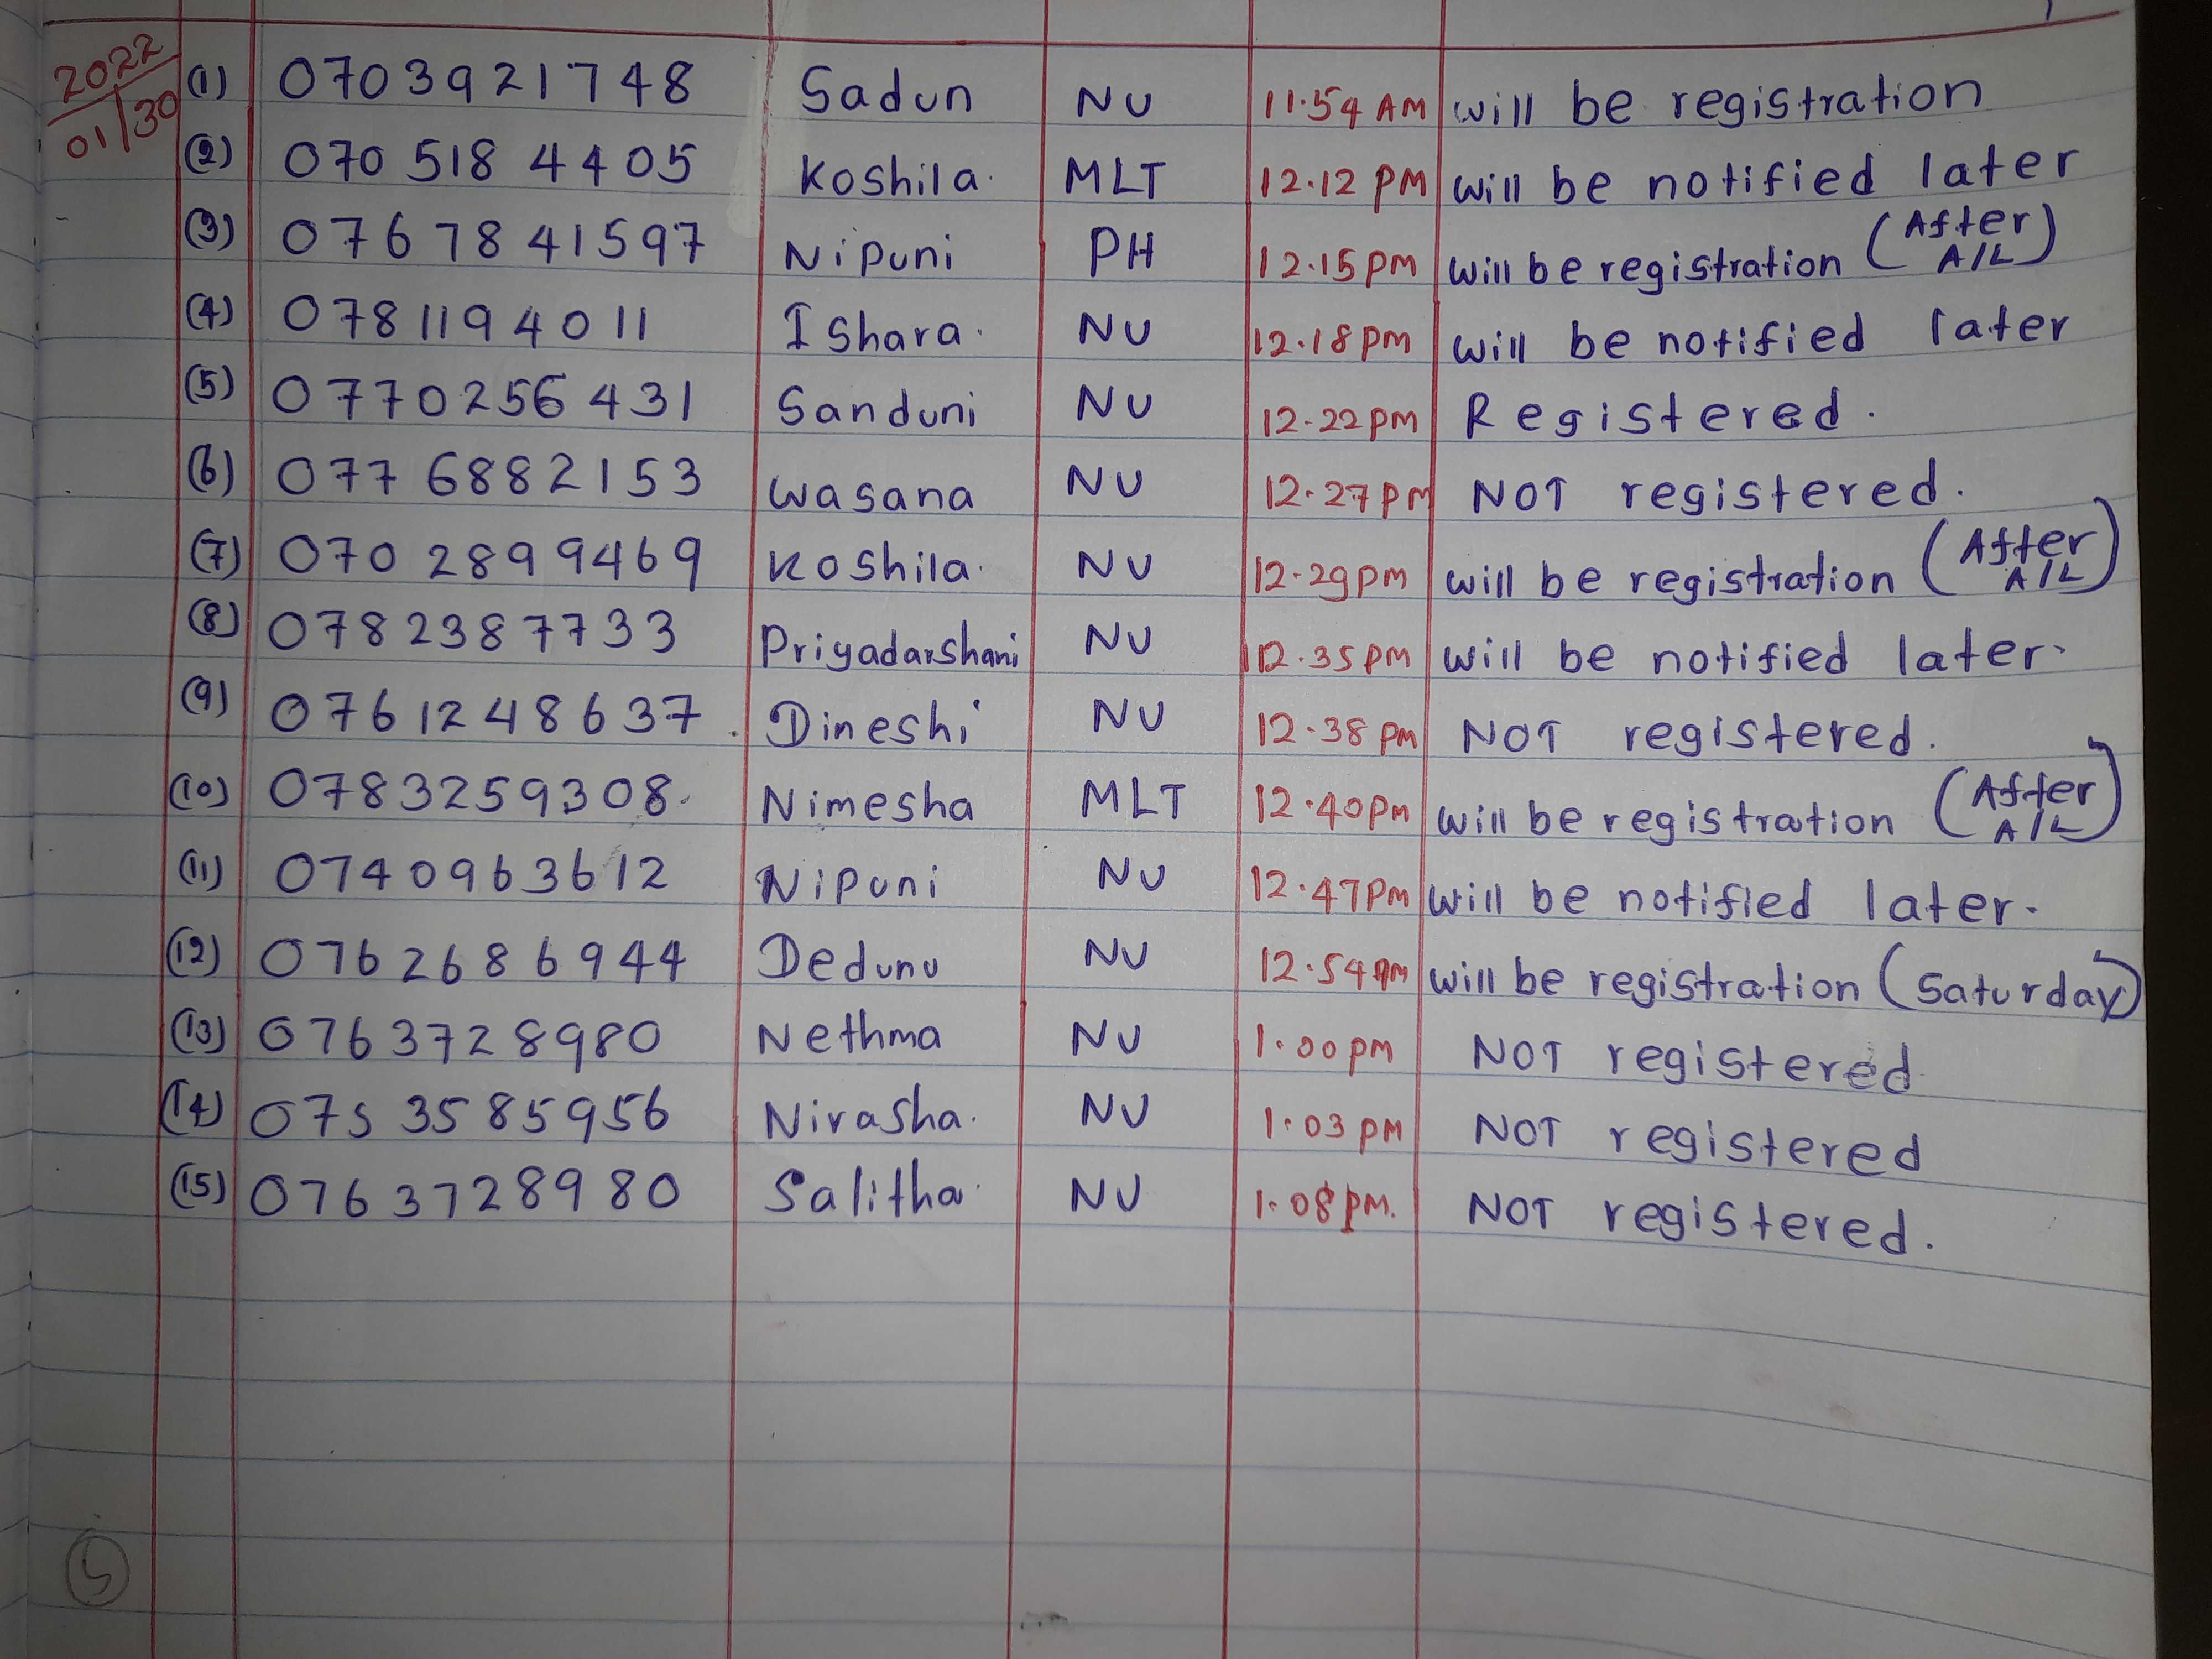 2022
01/30
(1) 0703921748 Sadun NU 11.54 AM will be registration
(2) 070 518 4405 Koshila. MLT 12.12 PM will be notified later
(3) 0767841597 Nipuni PH 12.15 PM will be registration (After A/L)
(4) 0781194011 Ishara. NU 12.18 PM will be notified later
(5) 0770256431 Sanduni NU 12.22 PM Registered.
(6) 077 6882153 Wasana NU 12.27 PM NOT registered.
(7) 070 2899469 Koshila. NU 12.29 PM will be registration (After A/L)
(8) 0782387733 Priyadarshani NU 12.35 PM will be notified later.
(9) 0761248637 Dineshi NU 12.38 PM NOT registered.
(10) 0783259308. Nimesha MLT 12.40 PM will be registration (After A/L)
(11) 0740963612 Nipuni NU 12.47 PM will be notified later.
(12) 0762686944 Dedunu NU 12.54 PM will be registration (Saturday)
(13) 0763728980 Nethma NU 1.00 PM NOT registered
(14) 075 3585956 Nirasha. NU 1.03 PM NOT registered
(15) 0763728980 Salitha. NU 1.08 PM. NOT registered.
5